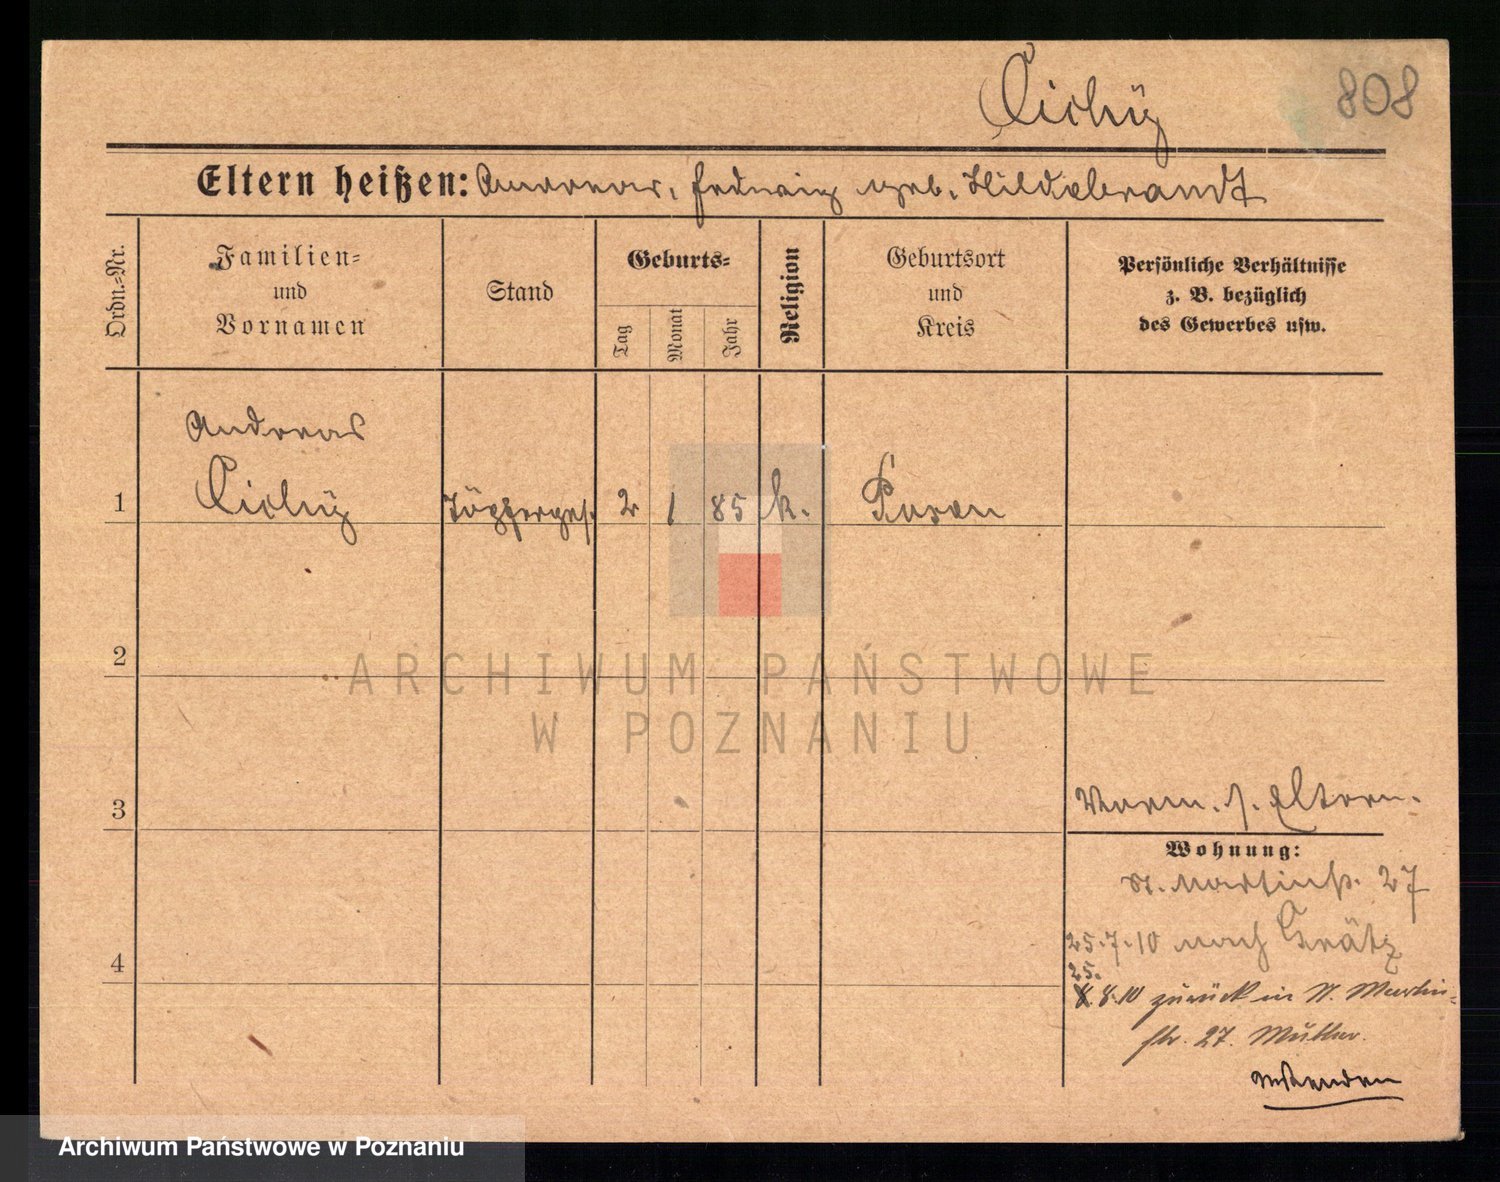 Cichÿ
808
Eltern heißen: Andreas, Hedwig geb. Hildebrandt
Ordn.=Nr.
Familien=
und
Vornamen
Stand
Geburts=
Tag
Monat
Jahr
Religion
Geburtsort
und
Kreis
Persönliche Verhältnisse
z. B. bezüglich
des Gewerbes usw.
Andreas
1 Cichÿ Töpferges. 2 1 85 k. Posen
2
ARCHIWUM PAŃSTWOWE
W POZNANIU
3
Eltern.
Wohnung:
St. Martinstr. 27
25.7.10 nach Grätz
4
25.
8.10 zurück in St. Martin=
str. 27. Mutter.
Archiwum Państwowe w Poznaniu